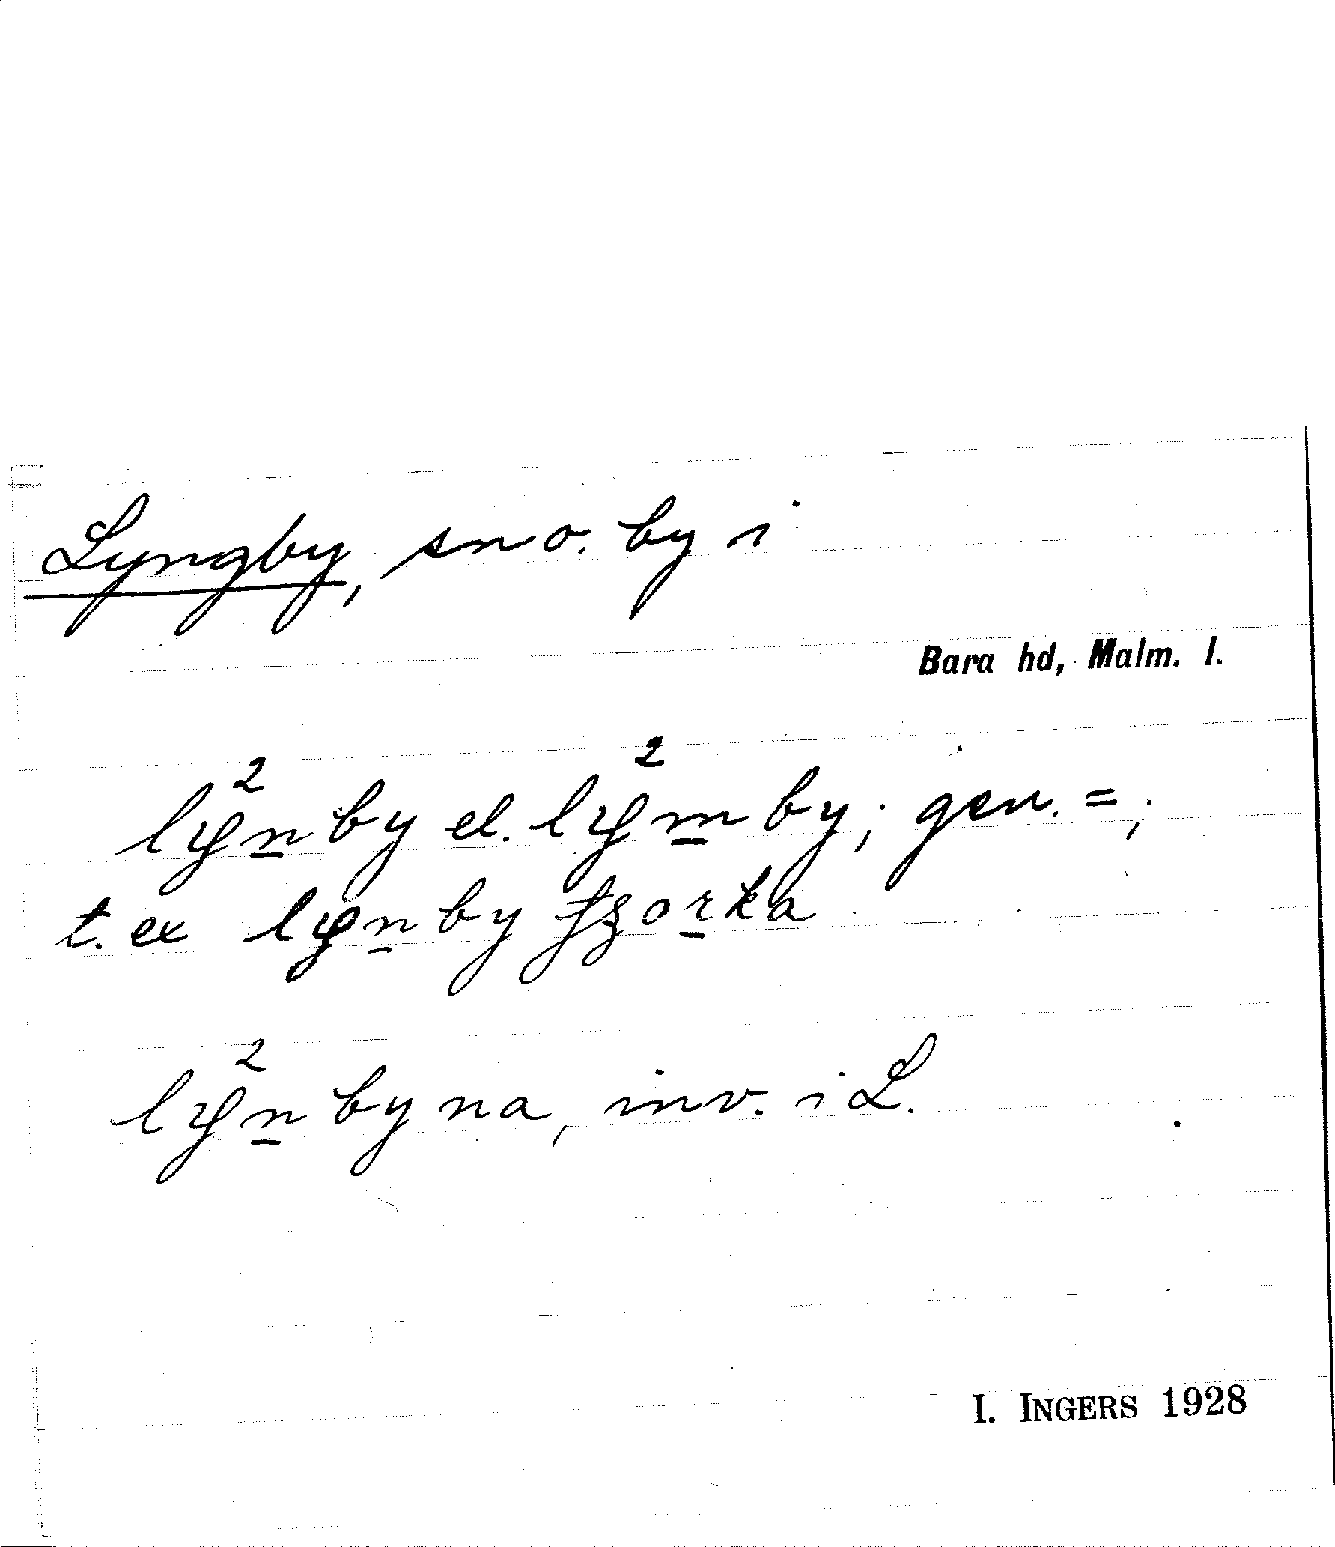 Lyngby, sn o. by i
Bara hd, Malm. l.
lyn²by el. lym²by; gen. =;
t. ex lynby
lyn²byna, inv. i L.
I. INGERS 1928